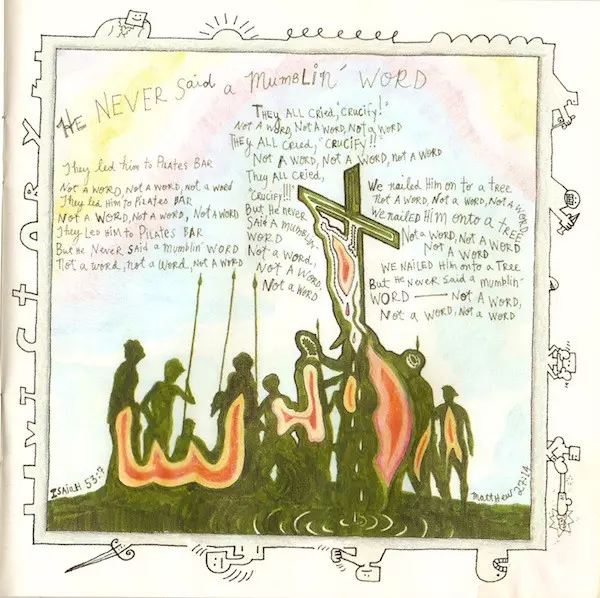 HE NEVER Said a MumbLin' WORD
They led him to Pilates BAR
Not a WORD, Not a WORD, not a word
They Led Him to Pilates BAR
Not a WORD, Not a WORD, Not a WORD
They Led Him to Pilates BAR
But He Never Said a mumblin' WORD
Not a word, not a Word, Not a WORD
They ALL Cried, "Crucify!"
Not A WORD, Not A WORD, Not a WORD
THEY ALL CRIED, "CRUCIFY!!"
Not A WORD, Not A WORD, not A WORD
They ALL Cried,
"CRUCIFY!!!"
But He never
SAID A mumblin'
WORD
Not a Word,
Not A WORD,
Not a WORD
We nailed Him on to a tree
Not A WORD, Not a WORD, Not a WORD
We nailed Him onto a TREE
Not a WORD, Not A WORD
Not A WORD
WE NAILED Him onto a Tree
But He never Said a mumblin'
WORD — Not A WORD,
Not a WORD, Not a WORD
ISAiah 53:7
Matthew 27:14
VICTORY